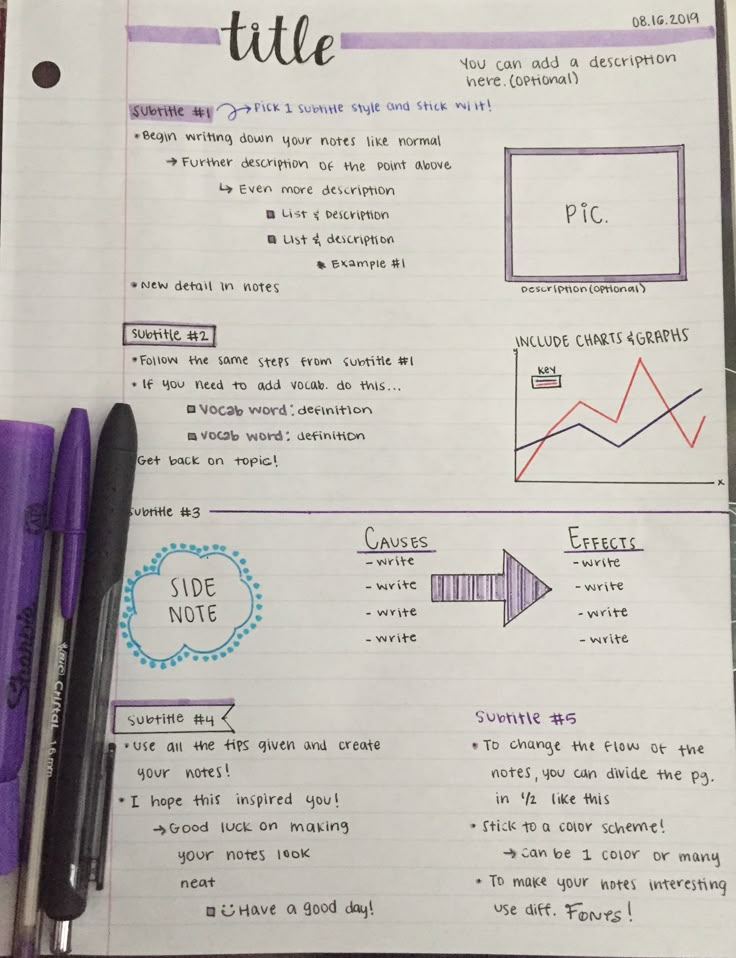 08.16.2019
title
You can add a description
here. (optional)
Subtitle #1 → Pick 1 subtitle style and stick w/ it!
• Begin writing down your notes like normal
→ Further description of the point above
↳ Even more description
List & Description
List & description
Example #1
• New detail in notes
PIC.
Description (optional)
Subtitle #2
• Follow the same steps from subtitle #1
• If you need to add vocab. do this...
Vocab word: definition
vocab word: definition
Get back on topic!
INCLUDE CHARTS & GRAPHS
Key
x
Subtitle #3
SIDE
NOTE
CAUSES
- write
- write
- write
- write
EFFECTS
- write
- write
- write
- write
Subtitle #4
• Use all the tips given and create
your notes!
• I hope this inspired you!
→ Good luck on making
your notes look
neat
☺ Have a good day!
Subtitle #5
• To change the flow of the
notes, you can divide the pg.
in 1/2 like this
• Stick to a color scheme!
→ can be 1 color or many
• To make your notes interesting
use diff. Fonts!
Sharpie
Cristal